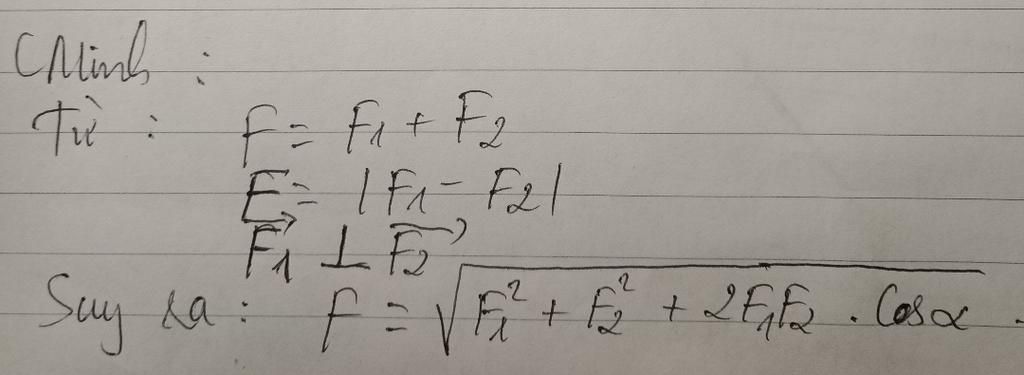 CMinh :
Từ : F = F₁ + F₂
F = |F₁ - F₂|
F₁⃗ ⊥ F₂⃗
Suy ra : F = √(F₁² + F₂² + 2F₁F₂ . Cosα) .